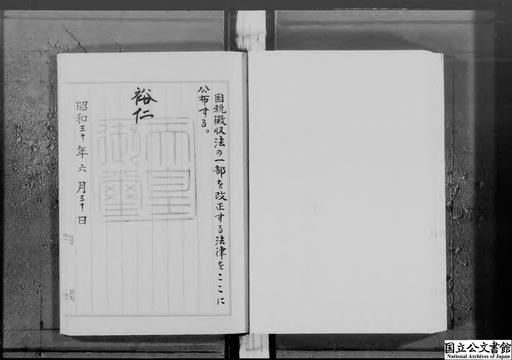 国税徴収法の一部を改正する法律をここに
公布する。
裕仁
天皇
御璽
昭和三十年六月三十日
国立公文書館
National Archives of Japan